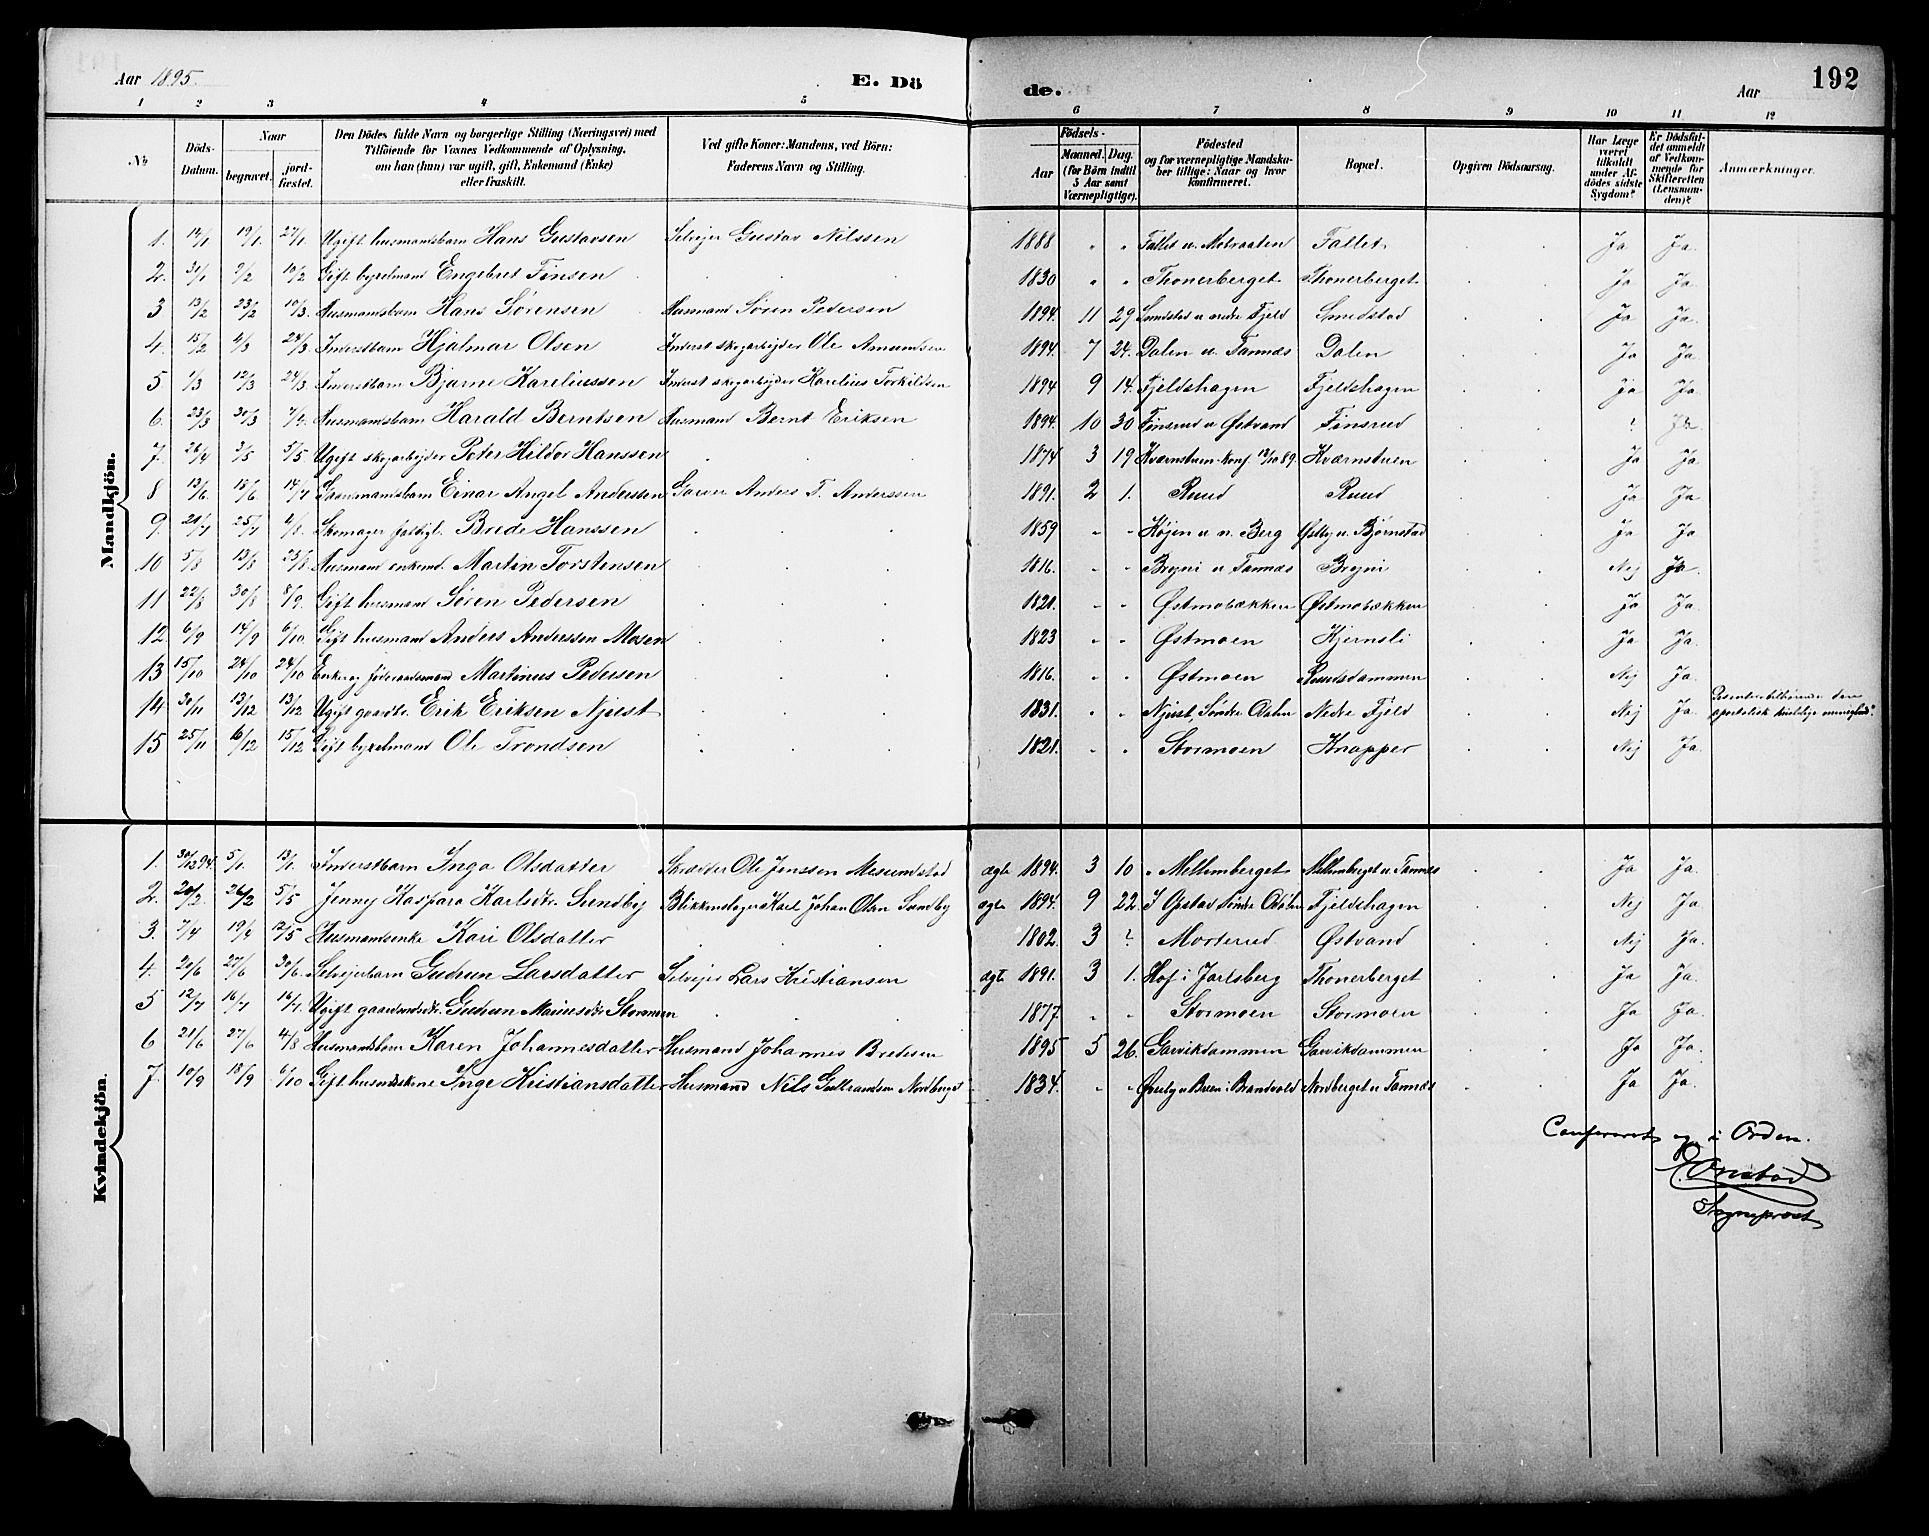 Aar 1895. E. Dö
de. Aar 192
1 2 3 4 5 6 7 8 9 10 11 12
No
Döds-Datum.
Naar
begravet.
jord-fæstet.
Den Dödes fulde Navn og borgerlige Stilling (Næringsvei) med
Tilföiende for Voxnes Vedkommende af Oplysning,
om han (hun) var ugift, gift, Enkemand (Enke)
eller fraskilt.
Ved gifte Koner: Mandens, ved Börn:
Faderens Navn og Stilling.
Födsels-
Aar
Maaned. Dag.
(for Börn indtil
5 Aar samt
Værnepligtige).
Födested
og for værnepligtige Mandska-
ber tillige: Naar og hvor
konfirmeret.
Bopæl.
Opgiven Dödsaarsag.
Har Læge
været
tilkaldt
under Af-
dödes sidste
Sygdom?
Er Dödsfal-
det anmeldt
af Vedkom-
mende for
Skifteretten
(Lensman-
den)?
Anmærkninger.
Mandkjön.
1. 14/1 19/1 27/1 Ugift husmandsbarn Hans Gustavsen Selvejer Gustav Nilssen 1888 " " Fallet u. Fallet Ja Ja.
2. 31/1 9/2 10/2 Gift bygselmand Engebret Finsen 1830 " " Thonerberget Thonerberget Ja Ja.
3 13/2 23/2 10/3 Husmandsbarn Hans Sørensen Husmand Søren Pedersen 1894. 11 29 Smedstad u. nedre Fjeld Smedstad Ja Ja.
4. 15/2 4/3 24/3 Inderstbarn Hjalmar Olsen Inderst skogarbejder Ole Amundsen 1894. 7 24. Dalen u. Tannæs Dalen Ja Ja.
5 1/3 12/3 24/3 Inderstbarn Bjarne Kareliussen Inderst skogarbejder Karelius Torkildsen 1894 9 14. Fjeldshagen Fjeldshagen Ja Ja.
6. 23/3 30/3 7/4 Husmandsbarn Harald Berntsen Husmand Bernt Eriksen 1894. 10 30 Finsrud u Østvand Finsrud ? Ja
7. 26/4 3/5 5/5 Ugift skogarbejder Peter Hildor Hanssen 1874 3 19 Kværnstuen-konf. 89. Kværnstuen Ja Ja
8 13/6. 18/6 14/7 Gaardmandsbarn Einar Angel Anderssen Garver Anders T. Anderssen 1891. 2 1. Ruud Ruud Ja Ja
9. 21/7 25/7 4/8. Skomager fattigl. Brede Hanssen 1859 " " Højen u. n. Berg Østby u. Bjørnstad Ja Ja
10 5/8 13/8 25/8. Husmand enkemd. Martin Torstensen 1816. " " Bryni u Tannæs Bryni Nej Ja.
11 22/8 30/8 8/9. Gift husmand Søren Pedersen 1821. " " Østmobækken Østmobækken Ja Ja.
12. 6/9 14/9 6/10 Gift husmand Anders Anderssen Mosen 1823 " " Østmoen Kjernsli Ja Ja.
13 15/10 24/10 24/10 Enkem. føderaadsmand Martinus Pedersen 1816. " " Østmoen Ruudsdammen Nej Ja.
14. 30/11 13/12 13/12 Ugift gaardbr. Erik Eriksen Njust 1831. " " Njust, Søndre Odalen Nedre Fjeld Nej Ja. Dissenter tilhørende den apostolisk kirkelige menighed.
15 25/11 16/12 15/12 Gift bygselmand Ole Trondsen 1821. " " Stormoen Knapper Nej Ja.
Kvindekjön.
1. 30/12 94. 5/1. 13/1. Inderstbarn Inga Olsdatter Skrædder Ole Jenssen Mesundstad ægte 1894. 3 10 " Mellemberget Mellemberget u. Tannæs Ja Ja.
2. 20/2 26/2 5/5 Jenny Kaspara Karlsdtr. Sundby Blikkenslager Karl Johan Olsen Sundby ægte 1894. 9 22. I Opstad Søndre Odalen Fjeldshagen Nej Ja.
3. 7/4 19/4 12/5 Husmandsenke Kari Olsdatter 1802. 3 ? Morterud Østvand Nej Ja.
4. 20/6 27/6 30/6. Selvejerbarn Gudrun Larsdatter Selvejer Lars Kristiansen ægte 1891. 3 1. Hof i Jarlsberg Thonerberget Ja Ja.
5 12/7 16/7 16/7. Ugift gaardmdsdtr. Gudrun Mariusdtr Stormoen 1877. " " Stormoen Stormoen Ja Ja.
6 21/6 27/6 4/8 Husmandsbarn Karen Johannesdatter Husmand Johannes Bredesen 1895 5 26. Garvikdammen Garvikdammen Ja Ja.
7. 10/9 18/9 6/10 Gift husmandskone Inge Kristiansdatter Husmand Nils Gulbrandsen Nordberget 1834. " " Øverby u Buen i Brandvold Nordberget u. Tannæs Ja Ja.
Confereret og i Orden.
Sogneprest